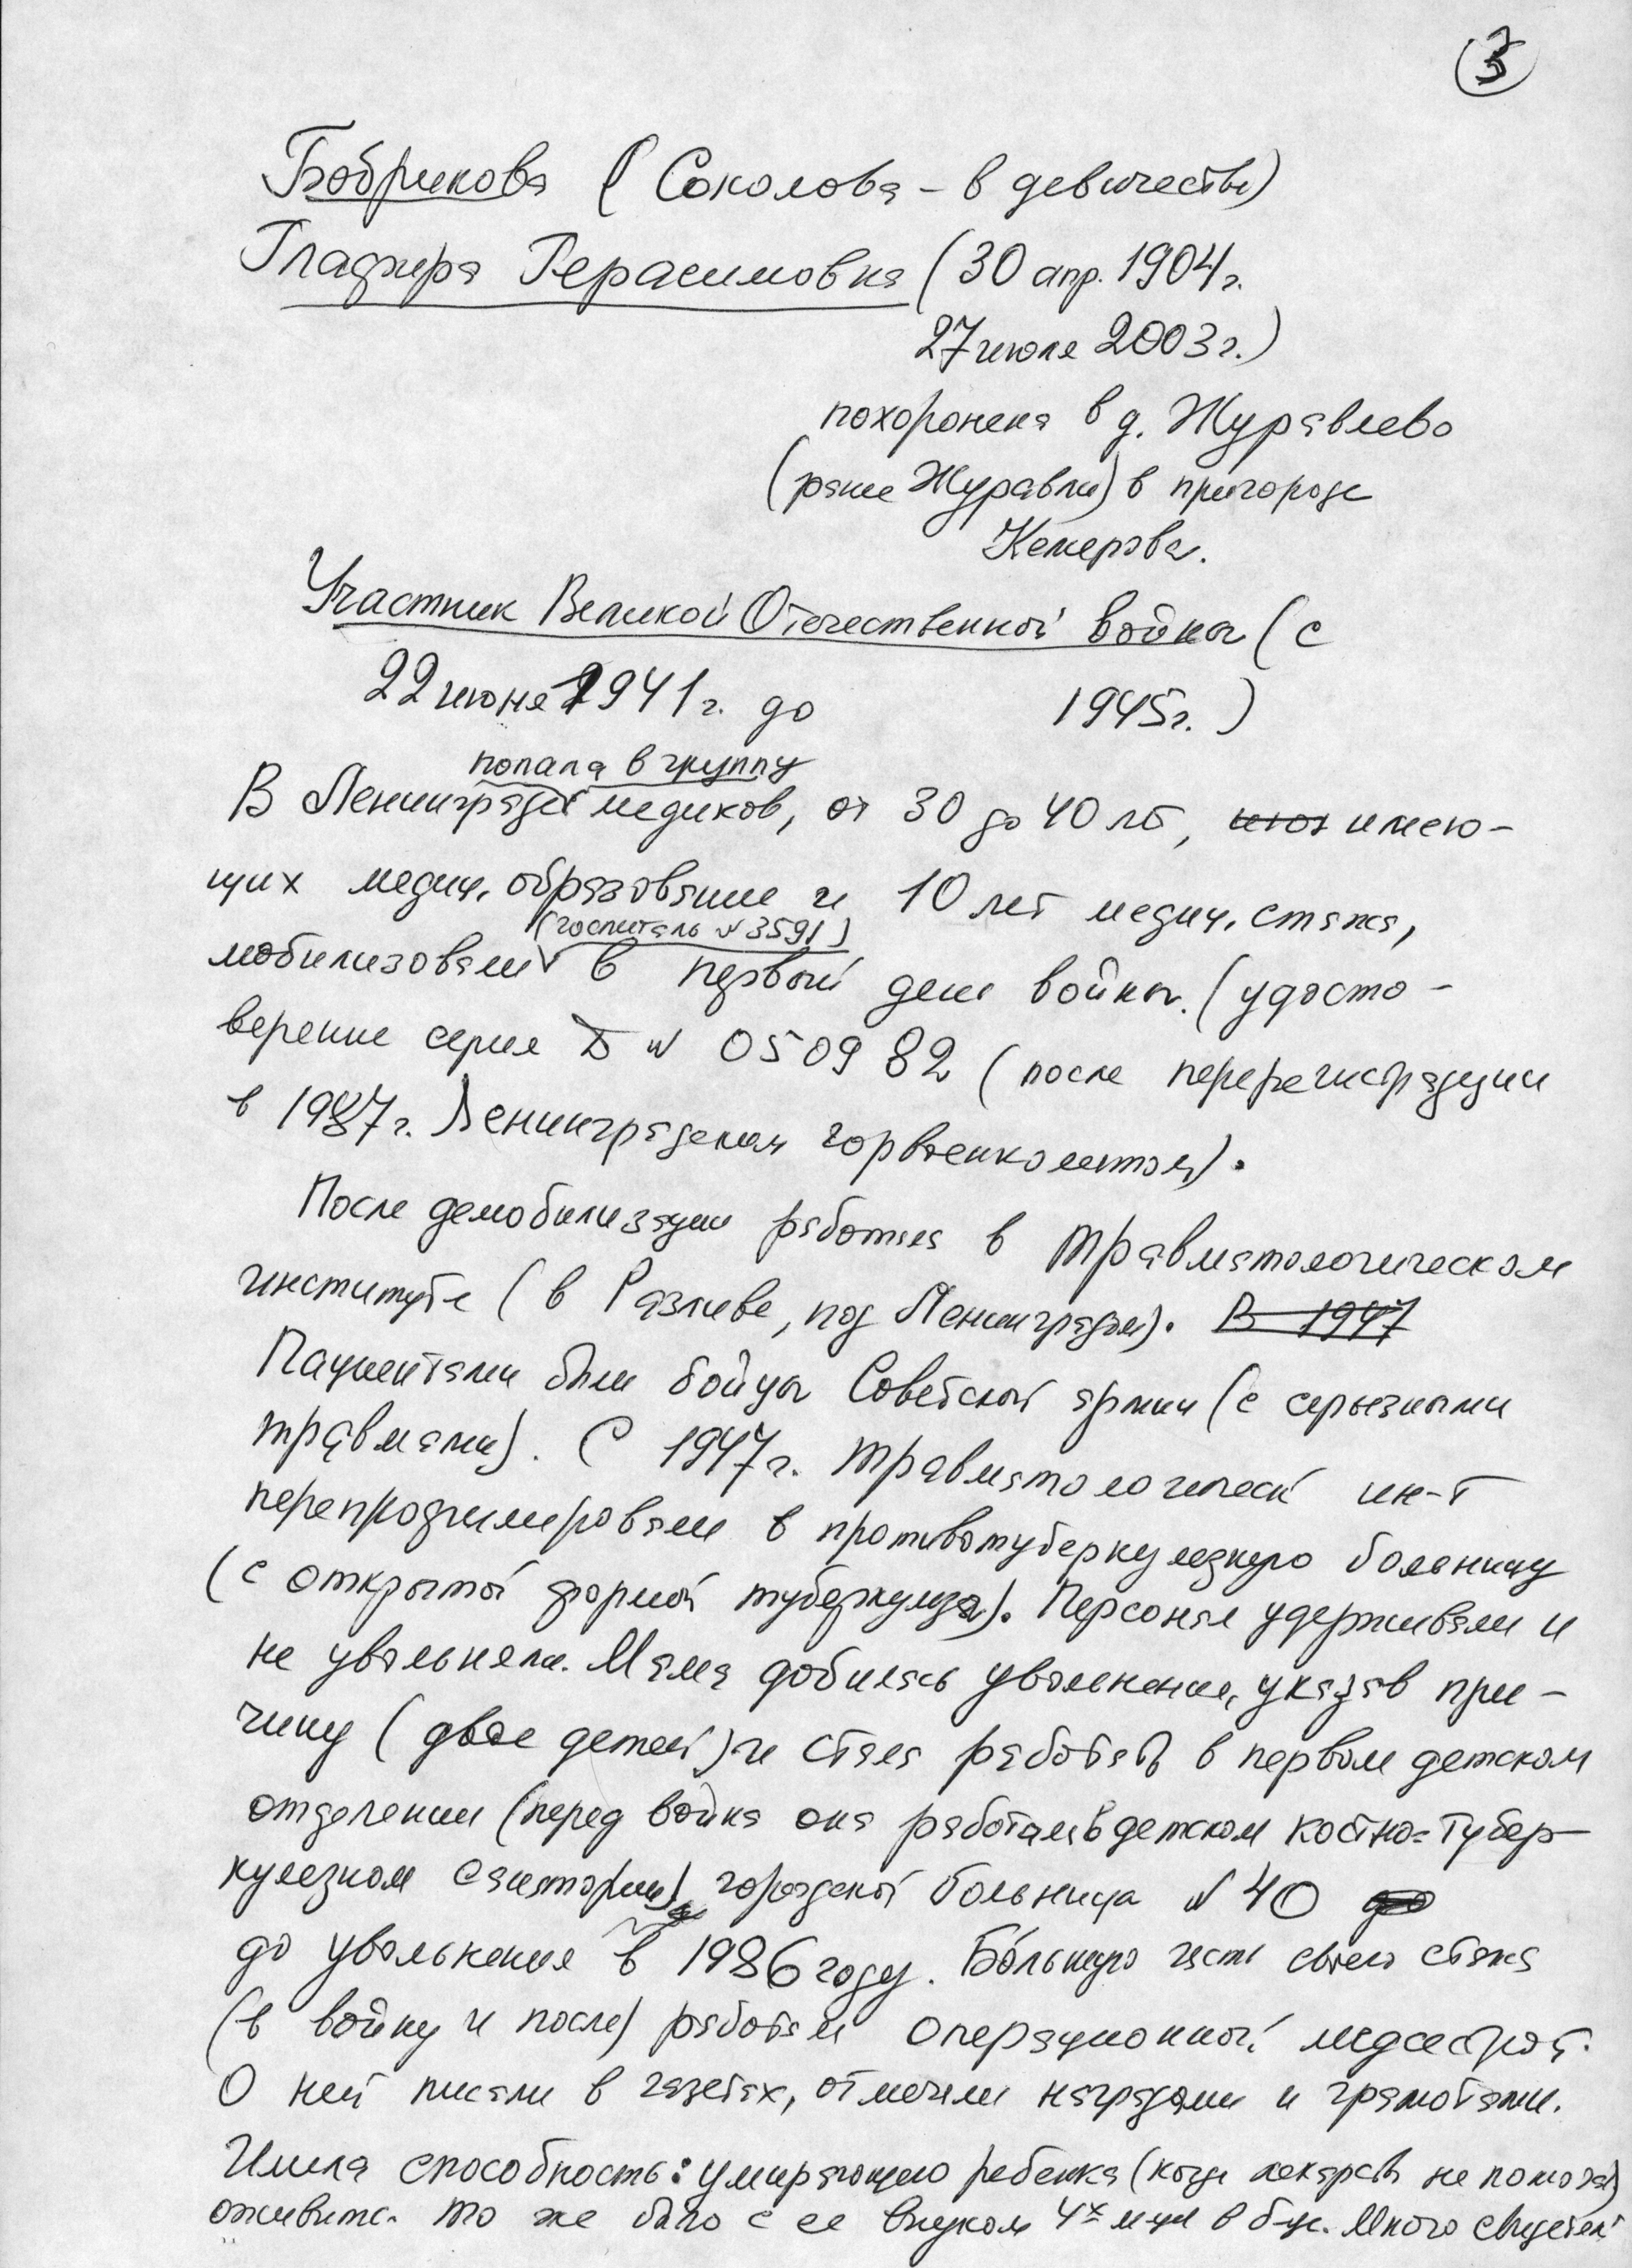 3
Бобрикова (Соколова – в девичестве)
Глафира Герасимовна (30 апр. 1904 г.
27 июля 2003 г.)
похоронена в д. Журавлево
(ранее Журавли) в пригороде
Кемерова.
Участник Великой Отечественной войны (с
22 июня 1941 г. до 1945 г.)
попала в группу
В Ленинграде медиков, от 30 до 40 лет, имею-
щих медиц. образование и 10 лет медиц. стажа,
(госпиталь № 3591)
мобилизовали в первый день войны. (удосто-
верение серия Б № 050982 (после перерегистрации
в 1987 г. Ленинградским горвоенкоматом).
После демобилизации работала в травматологическом
институте (в Разливе, под Ленинградом). В 1947
Пациентами были бойцы Советской армии (с серьезными
травмами). С 1947 г. травматологический ин-т
перепрофилировали в противотуберкулезную больницу
(с открытой формой туберкулеза). Персонал удерживали и
не увольняли. Мама добилась увольнения, указав при-
чину (двое детей) и стала работать в первом детском
отделении (перед войной она работала в детском костно-тубер-
кулезном санатории) городской больницы № 40
до увольнения в 1986 году. Бо́льшую часть своего стажа
(в войну и после) работала операционной медсестрой.
О ней писали в газетах, отмечали наградами и грамотами.
Имела способность: умирающего ребенка (когда лекарства не помогали)
оживить. То же было с ее внуком 4х мес. в б-це. Много свидетелей